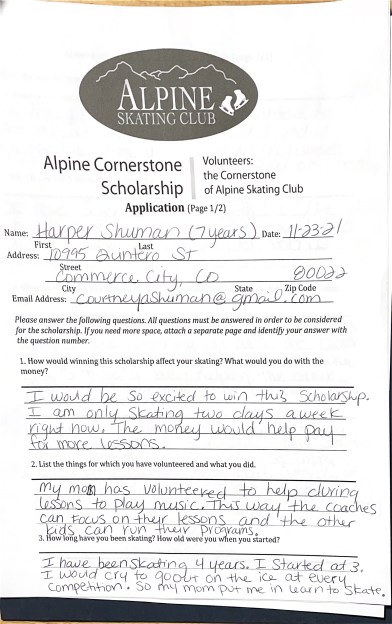 ALPINE
SKATING CLUB
Alpine Cornerstone Scholarship
Volunteers: the Cornerstone of Alpine Skating Club
Application (Page 1/2)
Name: Harper Shuman (7 years) Date: 11-23-21
First Last
Address: 10995 Quintero St
Street
Commerce City, CO 80022
City State Zip Code
Email Address: courtneyashuman@gmail.com
Please answer the following questions. All questions must be answered in order to be considered
for the scholarship. If you need more space, attach a separate page and identify your answer with
the question number.
1. How would winning this scholarship affect your skating? What would you do with the
money?
I would be so excited to win this scholarship.
I am only skating two days a week
right now. The money would help pay
for more lessons.
2. List the things for which you have volunteered and what you did.
My mom has volunteered to help during
lessons to play music. This way the coaches
can focus on their lessons and the other
kids can run their programs.
3. How long have you been skating? How old were you when you started?
I have been skating 4 years. I started at 3.
I would cry to go out on the ice at every
competition. So my mom put me in learn to skate.